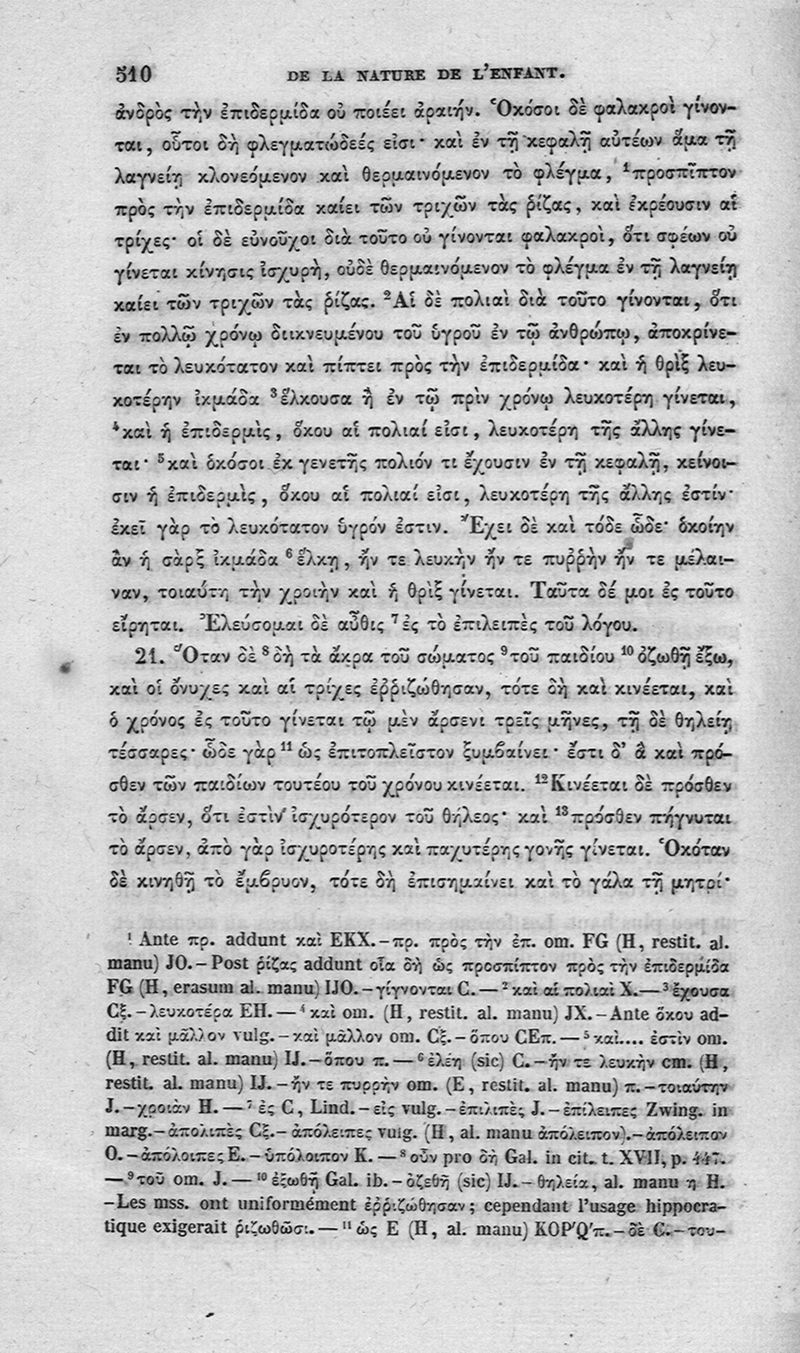 510 DE LA NATURE DE L'ENFANT.
ἀνδρὸς τὴν ἐπιδερμίδα οὐ ποιέει ἀραιήν. Ὁκόσοι δὲ φαλακροὶ γίνον-
ται, οὗτοι δὴ φλεγματώδεές εἰσι· καὶ ἐν τῇ κεφαλῇ αὐτέων ἅμα τῇ
λαγνείῃ κλονεόμενον καὶ θερμαινόμενον τὸ φλέγμα, ¹προσπῖπτον
πρὸς τὴν ἐπιδερμίδα καίει τῶν τριχῶν τὰς ῥίζας, καὶ ἐκρέουσιν αἱ
τρίχες· οἱ δὲ εὐνοῦχοι διὰ τοῦτο οὐ γίνονται φαλακροὶ, ὅτι σφέων οὐ
γίνεται κίνησις ἰσχυρὴ, οὐδὲ θερμαινόμενον τὸ φλέγμα ἐν τῇ λαγνείῃ
καίει τῶν τριχῶν τὰς ῥίζας. ²Αἱ δὲ πολιαὶ διὰ τοῦτο γίνονται, ὅτι
ἐν πολλῷ χρόνῳ διικνευμένου τοῦ ὑγροῦ ἐν τῷ ἀνθρώπῳ, ἀποκρίνε-
ται τὸ λευκότατον καὶ πίπτει πρὸς τὴν ἐπιδερμίδα· καὶ ἡ θρὶξ λευ-
κοτέρην ἰκμάδα ³ἕλκουσα ἢ ἐν τῷ πρὶν χρόνῳ λευκοτέρη γίνεται,
⁴καὶ ἡ ἐπιδερμὶς, ὅκου αἱ πολιαί εἰσι, λευκοτέρη τῆς ἄλλης γίνε-
ται· ⁵καὶ ὁκόσοι ἐκ γενετῆς πολιόν τι ἔχουσιν ἐν τῇ κεφαλῇ, κείνοι-
σιν ἡ ἐπιδερμὶς, ὅκου αἱ πολιαί εἰσι, λευκοτέρη τῆς ἄλλης ἐστίν·
ἐκεῖ γὰρ τὸ λευκότατον ὑγρόν ἐστιν. Ἔχει δὲ καὶ τόδε ὧδε· ὁκοίην
ἂν ἡ σὰρξ ἰκμάδα ⁶ἕλκῃ, ἤν τε λευκὴν ἤν τε πυῤῥὴν ἤν τε μέλαι-
ναν, τοιαύτη τὴν χροιὴν καὶ ἡ θρὶξ γίνεται. Ταῦτα δέ μοι ἐς τοῦτο
εἴρηται. Ἐλεύσομαι δὲ αὖθις ⁷ἐς τὸ ἐπιλειπὲς τοῦ λόγου.
21. Ὅταν δὲ ⁸δὴ τὰ ἄκρα τοῦ σώματος ⁹τοῦ παιδίου ¹⁰ὀζωθῇ ἔξω,
καὶ οἱ ὄνυχες καὶ αἱ τρίχες ἐῤῥιζώθησαν, τότε δὴ καὶ κινέεται, καὶ
ὁ χρόνος ἐς τοῦτο γίνεται τῷ μὲν ἄρσενι τρεῖς μῆνες, τῇ δὲ θηλείῃ
τέσσαρες· ὧδε γὰρ ¹¹ὡς ἐπιτοπλεῖστον ξυμβαίνει· ἔστι δ' ἃ καὶ πρό-
σθεν τῶν παιδίων τουτέου τοῦ χρόνου κινέεται. ¹²Κινέεται δὲ πρόσθεν
τὸ ἄρσεν, ὅτι ἐστὶν ἰσχυρότερον τοῦ θήλεος· καὶ ¹³πρόσθεν πήγνυται
τὸ ἄρσεν, ἀπὸ γὰρ ἰσχυροτέρης καὶ παχυτέρης γονῆς γίνεται. Ὁκόταν
δὲ κινηθῇ τὸ ἔμβρυον, τότε δὴ ἐπισημαίνει καὶ τὸ γάλα τῇ μητρί·
¹ Ante πρ. addunt καὶ EKX.–πρ. πρὸς τὴν ἐπ. om. FG (H, restit. al.
manu) JO.–Post ῥίζας addunt οἷα δὴ ὡς προσπίπτον πρὸς τὴν ἐπιδερμίδα
FG (H, erasum al. manu) IJO.–γίγνονται C.—² καὶ αἱ πολιαὶ X.—³ ἔχουσα
Cξ.–λευκοτέρα EH.—⁴ καὶ om. (H, restit. al. manu) JX.–Ante ὅκου ad-
dit καὶ μᾶλλον vulg.–καὶ μᾶλλον om. Cξ.–ὅπου CEπ.—⁵ καὶ.... ἐστὶν om.
(H, restit. al. manu) IJ.–ὅπου π.—⁶ ἑλέη (sic) C.–ἤν τε λευκὴν om. (H,
restit. al. manu) IJ.–ἤν τε πυρρὴν om. (E, restit. al. manu) π.–τοιαύτην
J.–χροιὰν H.—⁷ ἐς C, Lind.–εἰς vulg.–ἐπιλιπὲς J.–ἐπίλειπες Zwing. in
marg.–ἀπολιπὲς Cξ.–ἀπόλειπες vulg. (H, al. manu ἀπόλειπον).–ἀπόλειπον
O.–ἀπόλοιπες E.–ὑπόλοιπον K.—⁸ οὖν pro δὴ Gal. in cit. t. XVII, p. 447.
—⁹ τοῦ om. J.—¹⁰ ἐξωθῇ Gal. ib.–ὀζεθῇ (sic) IJ.–θηλεία, al. manu η H.
–Les mss. ont uniformément ἐῤῥιζώθησαν; cependant l'usage hippocra-
tique exigerait ῥιζωθῶσι.—¹¹ ὡς E (H, al. manu) KOP'Q'π.–δὲ C.–του-